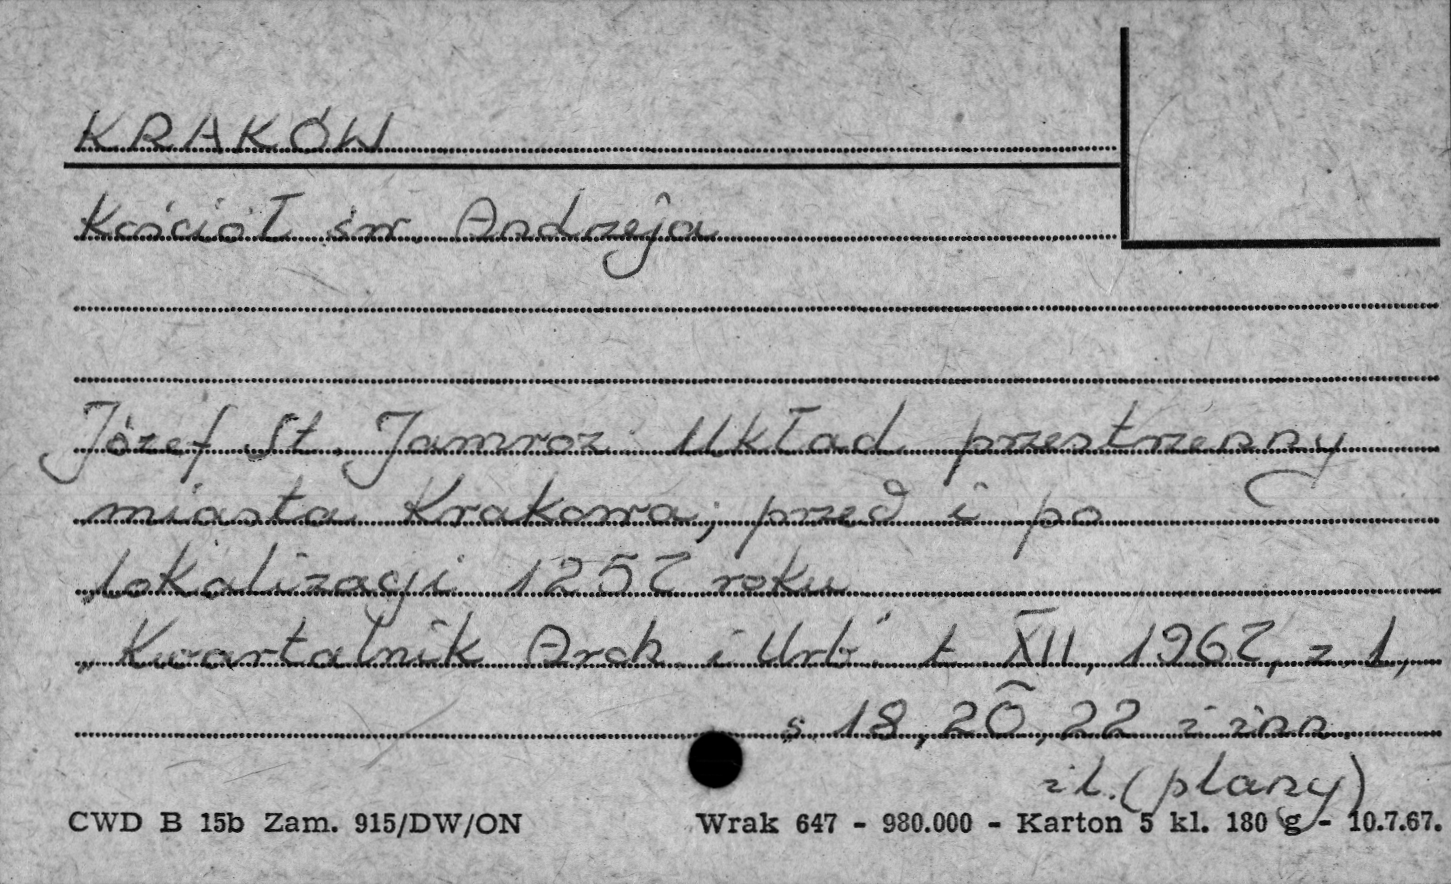 KRAKÓW
Kościół św. Andrzeja
Józef St. Jamroz: Układ przestrzenny
miasta Krakowa, przed i po
lokalizacji 1257 roku
„Kwartalnik Arch. i Urb." t. XII, 1967, z 1,
s. 18, 20, 22 i inn.
il. (plany)
CWD B 15b Zam. 915/DW/ON Wrak 647 - 980.000 - Karton 5 kl. 180 g - 10.7.67.